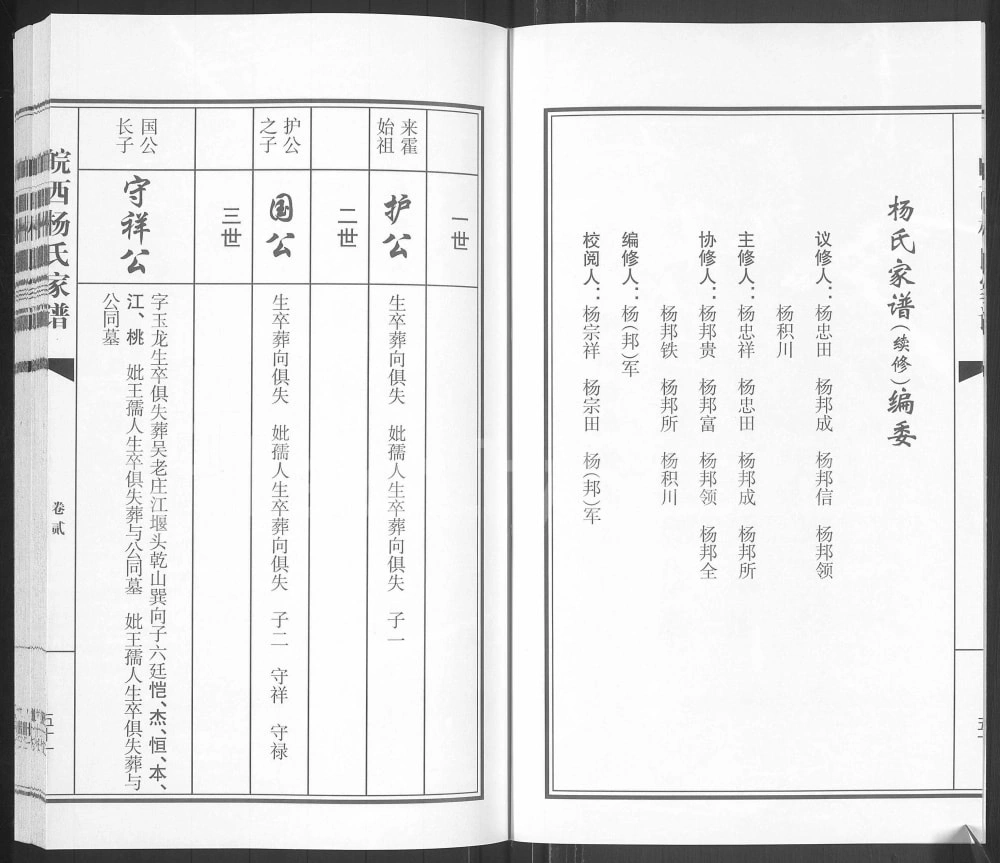 杨氏家谱（续修）编委
议修人：杨忠田 杨邦成 杨邦信 杨邦领
杨积川
主修人：杨忠祥 杨忠田 杨邦成 杨邦所
协修人：杨邦贵 杨邦富 杨邦领 杨邦全
杨邦铁 杨邦所 杨积川
编修人：杨（邦）军
校阅人：杨宗祥 杨宗田 杨（邦）军
一世
来霍
始祖
护公
生卒葬向俱失 妣孺人生卒葬向俱失 子一
二世
护公
之子
国公
生卒葬向俱失 妣孺人生卒葬向俱失 子二 守祥 守禄
三世
国公
长子
守祥公
字玉龙生卒俱失葬吴老庄江堰头乾山巽向子六廷恺、杰、恒、本、
江、桃 妣王孺人生卒俱失葬与公同墓 妣王孺人生卒俱失葬与
公同墓
皖西杨氏家谱
卷贰
五十一